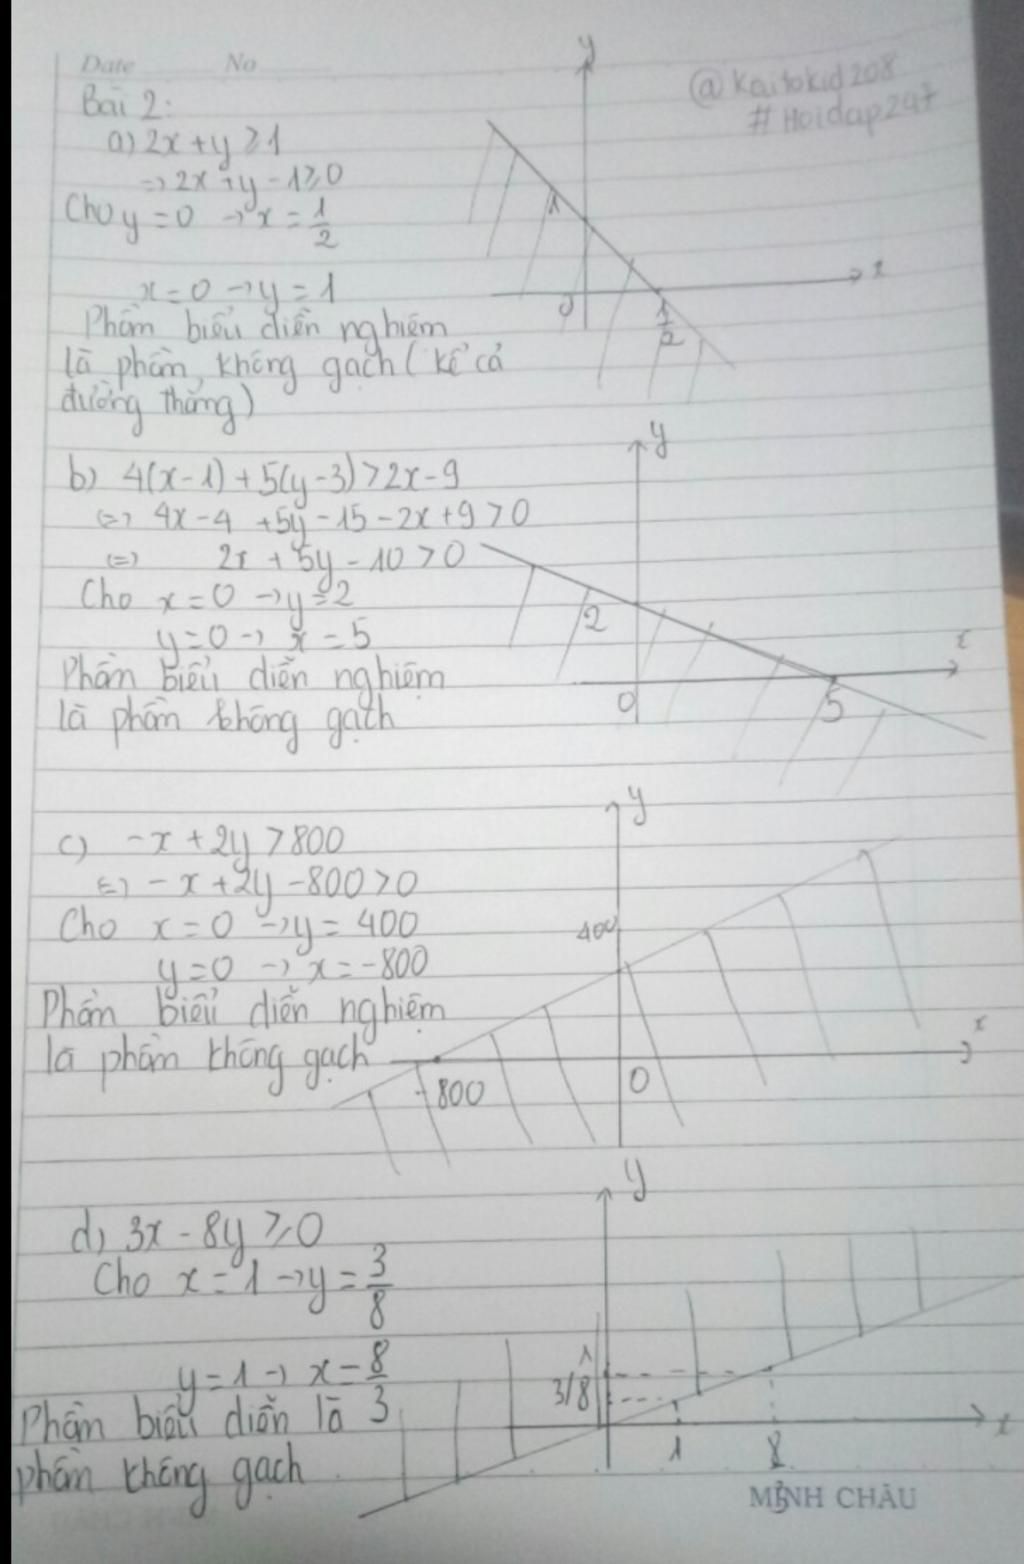 Date No
@Kaitokid208
#Hoidap247
Bài 2:
a) 2x + y ≥ 1
=> 2x + y - 1 ≥ 0
Cho y = 0 → x = 1/2
x = 0 → y = 1
Phần biểu diễn nghiệm
là phần không gạch (kể cả
đường thẳng)
y
1
x
0
1/2
b) 4(x-1) + 5(y-3) > 2x - 9
<=> 4x - 4 + 5y - 15 - 2x + 9 > 0
<=> 2x + 5y - 10 > 0
Cho x = 0 → y = 2
y = 0 → x = 5
Phần biểu diễn nghiệm
là phần không gạch
y
2
x
0
5
c) -x + 2y > 800
<=> -x + 2y - 800 > 0
Cho x = 0 → y = 400
y = 0 → x = -800
Phần biểu diễn nghiệm
là phần không gạch
y
400
x
-800
0
d) 3x - 8y ≥ 0
Cho x = 1 → y = 3/8
y = 1 → x = 8/3
Phần biểu diễn là
phần không gạch
y
1
3/8
x
1
8/3
MINH CHÂU